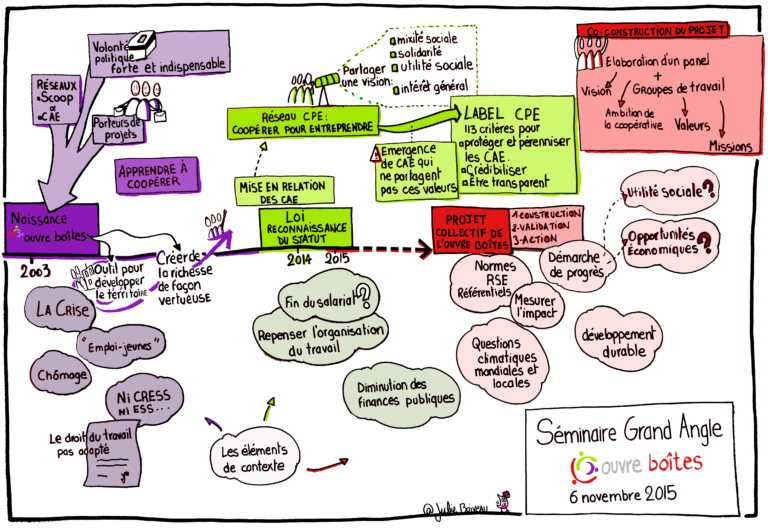 Volonté
politique
forte et indispensable
RÉSEAUX
Scoop
&
CAE
Porteurs de
projets
APPRENDRE À
COOPÉRER
Naissance
ouvre boîtes
2003
Outil pour
développer
le territoire
Créer de
la richesse
de façon
vertueuse
LA CRISE
"Emploi-jeunes"
Chômage
Ni CRESS
Ni ESS...
Le droit du travail
pas adapté
Les éléments
de contexte
Partager
une vision:
mixité sociale
solidarité
utilité sociale
intérêt général
Réseau CPE:
COOPÉRER POUR ENTREPRENDRE
Emergence
de CAE qui
ne partagent
pas ces valeurs
LABEL CPE
113 critères pour
protéger et pérenniser
les CAE.
Crédibiliser
Être transparent
MISE EN RELATION
DES CAE
LOI
RECONNAISSANCE
DU STATUT
2014
2015
Fin du salariat?
Repenser l'organisation
du travail
Diminution des
finances publiques
CO-CONSTRUCTION DU PROJET
Elaboration d'un panel
+
Vision
Groupes de travail
Ambition de
la coopérative
Valeurs
Missions
PROJET
COLLECTIF DE
L'OUVRE BOÎTES
1-CONSTRUCTION
2-VALIDATION
3-ACTION
Utilité sociale?
Opportunités
Économiques?
Démarche
de progrès
Normes
RSE
Référentiels
Mesurer
l'impact
Questions
climatiques
mondiales et
locales
développement
durable
Séminaire Grand Angle
ouvre boîtes
6 novembre 2015
@Julie Boiveau